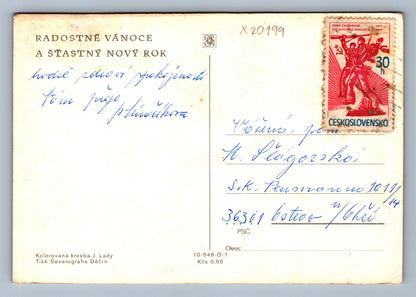 X 20199
RADOSTNÉ VÁNOCE
A ŠŤASTNÝ NOVÝ ROK
hodně zdraví spokojenosti
Vám přeje
30
h
ČESKOSLOVENSKO
Vážená
M.
S.K. Neumanna 1011/14
36301 Ostrov n/Ohří
PSČ
Okres:
Kolorovaná kresba J. Lady
Tisk Severografia Děčín
10-548-O-1
Kčs 0,60